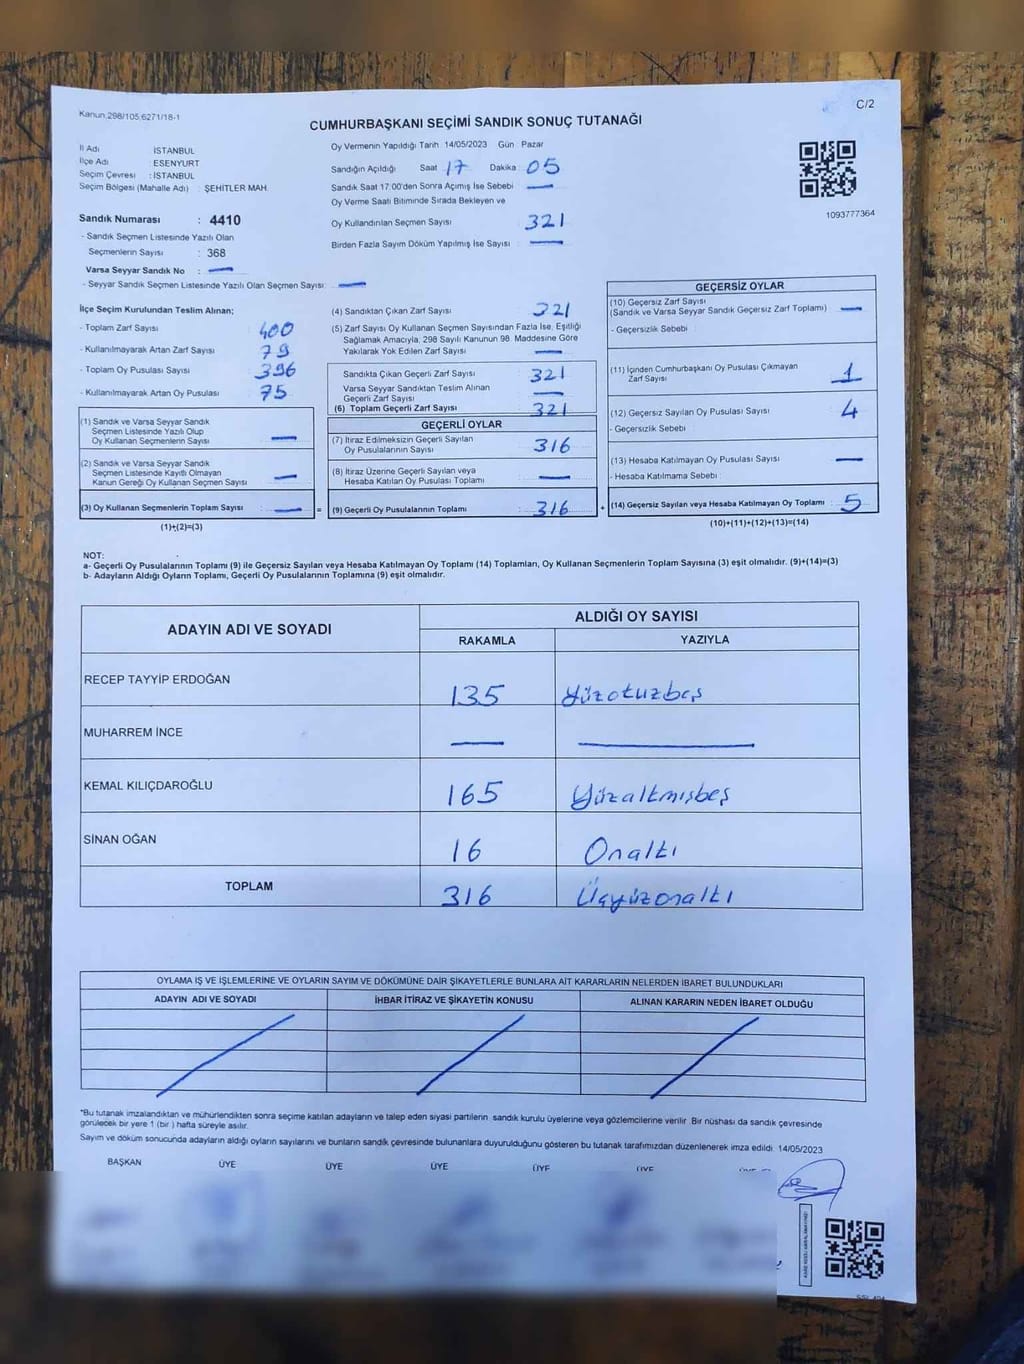 Kanun.298/105.6271/18-1
C/2
CUMHURBAŞKANI SEÇİMİ SANDIK SONUÇ TUTANAĞI
İl Adı : İSTANBUL
İlçe Adı : ESENYURT
Seçim Çevresi : İSTANBUL
Seçim Bölgesi (Mahalle Adı) : ŞEHİTLER MAH.
Sandık Numarası : 4410
- Sandık Seçmen Listesinde Yazılı Olan
Seçmenlerin Sayısı : 368
Varsa Seyyar Sandık No : —
- Seyyar Sandık Seçmen Listesinde Yazılı Olan Seçmen Sayısı: —
Oy Vermenin Yapıldığı Tarih 14/05/2023 Gün Pazar
Sandığın Açıldığı Saat 17 Dakika 05
Sandık Saat 17:00'den Sonra Açımış İse Sebebi : —
Oy Verme Saati Bitiminde Sırada Bekleyen ve
Oy Kullandırılan Seçmen Sayısı : 321
Birden Fazla Sayım Döküm Yapılmış İse Sayısı : —
1093777364
İlçe Seçim Kurulundan Teslim Alınan;
- Toplam Zarf Sayısı : 400
- Kullanılmayarak Artan Zarf Sayısı : 79
- Toplam Oy Pusulası Sayısı : 396
- Kullanılmayarak Artan Oy Pusulası : 75
(1) Sandık ve Varsa Seyyar Sandık
Seçmen Listesinde Yazılı Olup
Oy Kullanan Seçmenlerin Sayısı : —
(2) Sandık ve Varsa Seyyar Sandık
Seçmen Listesinde Kayıtlı Olmayan
Kanun Gereği Oy Kullanan Seçmen Sayısı : —
(3) Oy Kullanan Seçmenlerin Toplam Sayısı : — =
(1)+(2)=(3)
(4) Sandıktan Çıkan Zarf Sayısı : 321
(5) Zarf Sayısı Oy Kullanan Seçmen Sayısından Fazla İse, Eşitliği
Sağlamak Amacıyla, 298 Sayılı Kanunun 98. Maddesine Göre
Yakılarak Yok Edilen Zarf Sayısı : —
Sandıkta Çıkan Geçerli Zarf Sayısı : 321
Varsa Seyyar Sandıktan Teslim Alınan
Geçerli Zarf Sayısı : —
(6) Toplam Geçerli Zarf Sayısı : 321
GEÇERLİ OYLAR
(7) İtiraz Edilmeksizin Geçerli Sayılan
Oy Pusulasının Sayısı : 316
(8) İtiraz Üzerine Geçerli Sayılan veya
Hesaba Katılan Oy Pusulası Toplamı : —
(9) Geçerli Oy Pusulalarının Toplamı : 316 +
GEÇERSİZ OYLAR
(10) Geçersiz Zarf Sayısı
(Sandık ve Varsa Seyyar Sandık Geçersiz Zarf Toplamı) : —
- Geçersizlik Sebebi :
(11) İçinden Cumhurbaşkanı Oy Pusulası Çıkmayan
Zarf Sayısı : 1
(12) Geçersiz Sayılan Oy Pusulası Sayısı : 4
- Geçersizlik Sebebi :
(13) Hesaba Katılmayan Oy Pusulası Sayısı : —
- Hesaba Katılmama Sebebi :
(14) Geçersiz Sayılan veya Hesaba Katılmayan Oy Toplamı : 5
(10)+(11)+(12)+(13)=(14)
NOT:
a- Geçerli Oy Pusulalarının Toplamı (9) ile Geçersiz Sayılan veya Hesaba Katılmayan Oy Toplamı (14) Toplamları, Oy Kullanan Seçmenlerin Toplam Sayısına (3) eşit olmalıdır. (9)+(14)=(3)
b- Adayların Aldığı Oyların Toplamı, Geçerli Oy Pusulalarının Toplamına (9) eşit olmalıdır.
ADAYIN ADI VE SOYADI
ALDIĞI OY SAYISI
RAKAMLA YAZIYLA
RECEP TAYYİP ERDOĞAN 135 Yüzotuzbeş
MUHARREM İNCE — —
KEMAL KILIÇDAROĞLU 165 Yüzaltmışbeş
SİNAN OĞAN 16 Onaltı
TOPLAM 316 Üçyüzonaltı
OYLAMA İŞ VE İŞLEMLERİNE VE OYLARIN SAYIM VE DÖKÜMÜNE DAİR ŞİKAYETLERLE BUNLARA AİT KARARLARIN NELERDEN İBARET BULUNDUKLARI
ADAYIN ADI VE SOYADI İHBAR İTİRAZ VE ŞİKAYETİN KONUSU ALINAN KARARIN NEDEN İBARET OLDUĞU
*Bu tutanak imzalandıktan ve mühürlendikten sonra seçime katılan adayların ve talep eden siyasi partilerin sandık kurulu üyelerine veya gözlemcilerine verilir. Bir nüshası da sandık çevresinde
görülecek bir yere 1 (bir ) hafta süreyle asılır.
Sayım ve döküm sonucunda adayların aldığı oyların sayılarını ve bunların sandık çevresinde bulunanlara duyurulduğunu gösteren bu tutanak tarafımızdan düzenlenerek imza edildi. 14/05/2023
BAŞKAN ÜYE ÜYE ÜYE ÜYE ÜYE